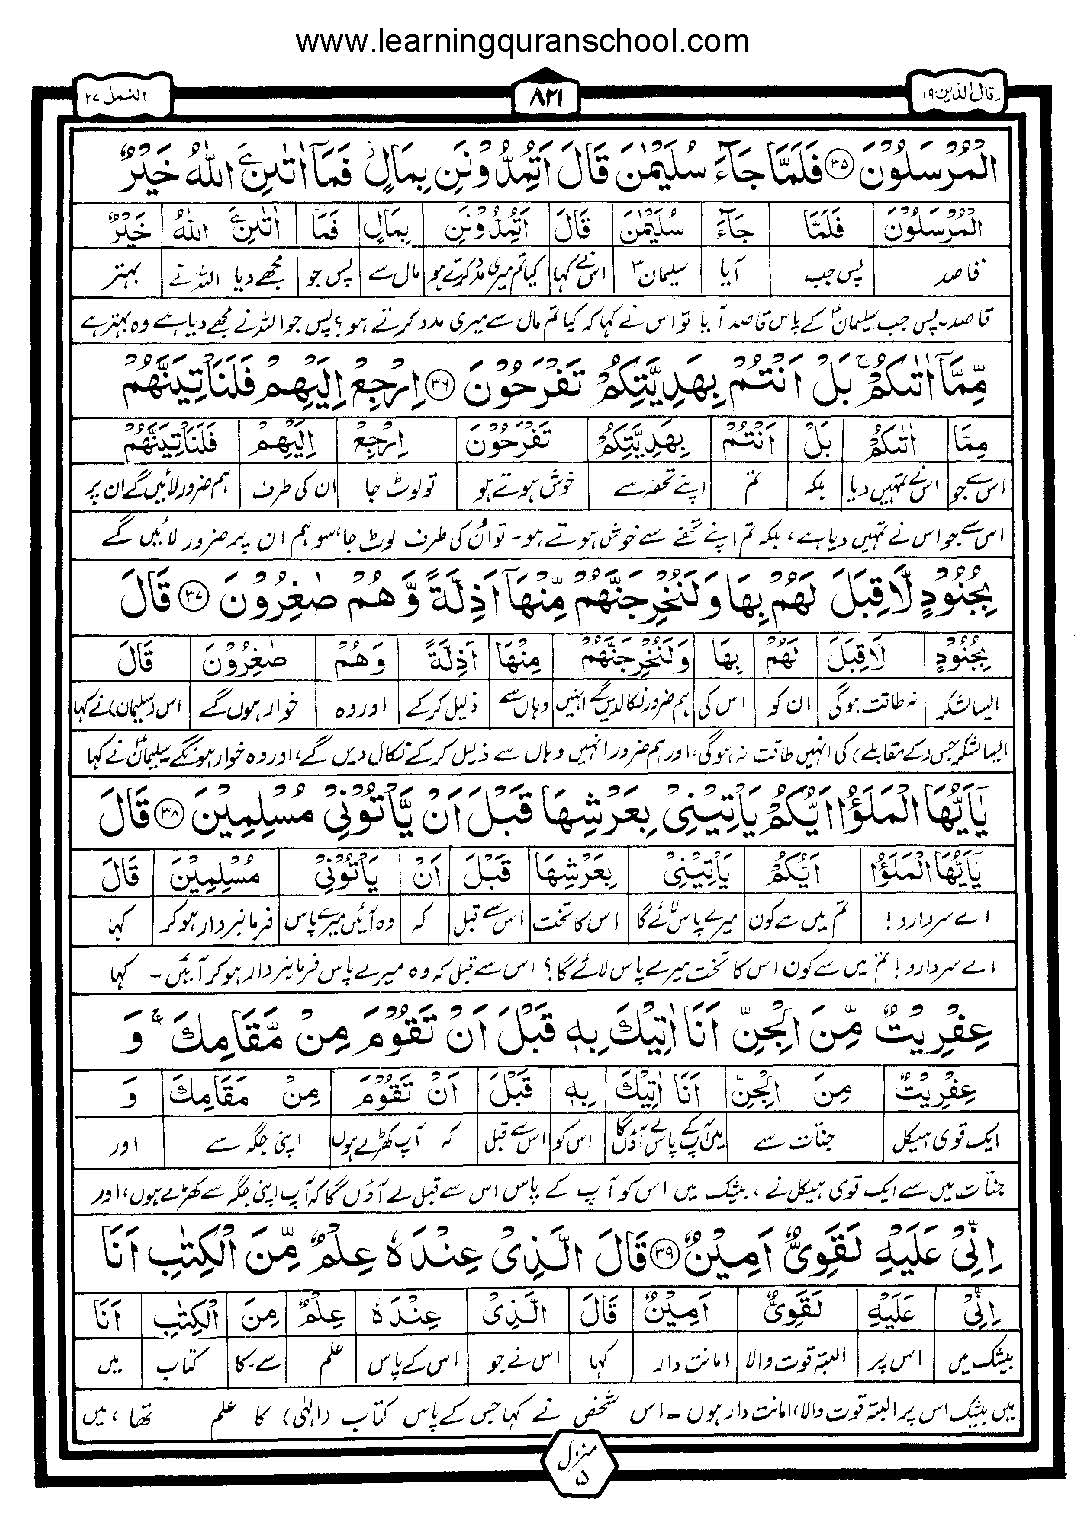 www.learningquranschool.com
وقال الذین ۱۹ ۸۲۱ النمل ۲۷
الْمُرْسَلُوْنَ ﴿۳۵﴾ فَلَمَّا جَآءَ سُلَیْمٰنَ قَالَ اَتُمِدُّوْنَنِ بِمَالٍ فَمَآ اٰتٰىنِۦَ اللّٰهُ خَیْرٌ
الْمُرْسَلُوْنَ فَلَمَّا جَآءَ سُلَیْمٰنَ قَالَ اَتُمِدُّوْنَنِ بِمَالٍ فَمَآ اٰتٰىنِۦَ اللّٰهُ خَیْرٌ
قاصد پس جب آیا سلیمانؑ اس نے کہا کیا تم میری مدد کرتے ہو مال سے پس جو مجھے دیا اللہ نے بہتر
قاصد۔ پس جب سلیمانؑ کے پاس قاصد آیا تو اس نے کہا کہ کیا تم مال سے میری مدد کرتے ہو؟ پس جو اللہ نے مجھے دیا ہے وہ بہتر ہے
مِّمَّآ اٰتٰىكُمْ ۚ بَلْ اَنْتُمْ بِهَدِیَّتِكُمْ تَفْرَحُوْنَ ﴿۳۶﴾ اِرْجِعْ اِلَیْهِمْ فَلَنَاْتِیَنَّهُمْ
مِمَّآ اٰتٰىكُمْ بَلْ اَنْتُمْ بِهَدِیَّتِكُمْ تَفْرَحُوْنَ اِرْجِعْ اِلَیْهِمْ فَلَنَاْتِیَنَّهُمْ
اس سے جو اس نے تمہیں دیا بلکہ تم اپنے تحفہ سے خوش ہوتے ہو تو لوٹ جا ان کی طرف ہم ضرور لائیں گے ان پر
اس سے جو اس نے تمہیں دیا ہے، بلکہ تم اپنے تحفے سے خوش ہوتے ہو۔ تو اُن کی طرف لوٹ جا، سو ہم ان پر ضرور لائیں گے
بِجُنُوْدٍ لَّا قِبَلَ لَهُمْ بِهَا وَلَنُخْرِجَنَّهُمْ مِّنْهَآ اَذِلَّةً وَّهُمْ صٰغِرُوْنَ ﴿۳۷﴾ قَالَ
بِجُنُوْدٍ لَا قِبَلَ لَهُمْ بِهَا وَلَنُخْرِجَنَّهُمْ مِنْهَا اَذِلَّةً وَهُمْ صٰغِرُوْنَ قَالَ
ایسا لشکر نہ طاقت ہوگی ان کو اس کی ہم ضرور نکالدیں گے انہیں وہاں سے ذلیل کر کے اور وہ خوار ہوں گے اس (سلیمان) نے کہا
ایسا لشکر جس (کے مقابلے) کی انہیں طاقت نہ ہوگی، اور ہم ضرور انہیں وہاں سے ذلیل کر کے نکال دیں گے، اور وہ خوار ہونگے سلیمانؑ نے کہا
یٰٓاَیُّهَا الْمَلَؤُا اَیُّكُمْ یَاْتِیْنِیْ بِعَرْشِهَا قَبْلَ اَنْ یَّاْتُوْنِیْ مُسْلِمِیْنَ ﴿۳۸﴾ قَالَ
یٰٓاَیُّهَا الْمَلَؤُا اَیُّكُمْ یَاْتِیْنِیْ بِعَرْشِهَا قَبْلَ اَنْ یَاْتُوْنِیْ مُسْلِمِیْنَ قَالَ
اے سردارو! تم میں سے کون میرے پاس لائے گا اس کا تخت اس سے قبل کہ وہ آئیں میرے پاس فرمانبردار ہو کر کہا
اے سردارو! تم میں سے کون اس کا تخت میرے پاس لائے گا؟ اس سے قبل کہ وہ میرے پاس فرمانبردار ہو کر آئیں۔ کہا
عِفْرِیْتٌ مِّنَ الْجِنِّ اَنَا اٰتِیْكَ بِهٖ قَبْلَ اَنْ تَقُوْمَ مِنْ مَّقَامِكَ ۚ وَ
عِفْرِیْتٌ مِنَ الْجِنِّ اَنَا اٰتِیْكَ بِهٖ قَبْلَ اَنْ تَقُوْمَ مِنْ مَقَامِكَ وَ
ایک قوی ہیکل جنّات سے میں آپ کے پاس لے آؤں گا اس کو اس سے قبل کہ آپ کھڑے ہوں اپنی جگہ سے اور
جنّات میں سے ایک قوی ہیکل نے، بیشک میں اس کو آپ کے پاس اس سے قبل لے آؤں گا کہ آپ اپنی جگہ سے کھڑے ہوں، اور
اِنِّیْ عَلَیْهِ لَقَوِیٌّ اَمِیْنٌ ﴿۳۹﴾ قَالَ الَّذِیْ عِنْدَهٗ عِلْمٌ مِّنَ الْكِتٰبِ اَنَا
اِنِّیْ عَلَیْهِ لَقَوِیٌّ اَمِیْنٌ قَالَ الَّذِیْ عِنْدَهٗ عِلْمٌ مِنَ الْكِتٰبِ اَنَا
بیشک میں اس پر البتہ قوت والا امانت دار کہا اس نے جو اس کے پاس علم سے۔کا کتاب میں
میں بیشک اس پر البتہ قوت والا، امانت دار ہوں۔ اس شخص نے کہا جس کے پاس کتاب (الٰہی) کا علم تھا، میں
منزل ۵